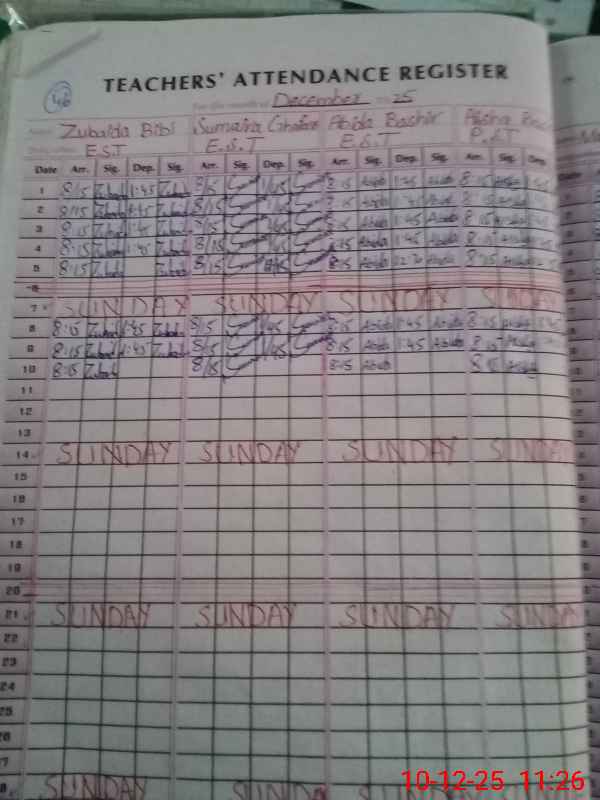 46
TEACHERS' ATTENDANCE REGISTER
For the month of December 2025
Zubaida Bibi Sumaira Ghafar Abida Bashir Aisha
E.S.T E.S.T E.S.T P.S.T
Date Arr. Sig. Dep. Sig. Arr. Sig. Dep. Sig. Arr. Sig. Dep. Sig. Arr. Sig. Dep.
1 8/15 Zubaid 1:45 Zubaid 8/15 1/45 8:15 Abida 1:45 Abida 8:15
2 8/15 Zubaid 1:45 Zubaid 8/15 8:15 Abida 1:45 Abida 8:15
3 8:15 Zubaid 1:45 Zubaid 8/15 1/45 8:15 Abida 1:45 Abida 8:15
4 8:15 Zubaid 1:45 Zubaid 8/15 1/45 8:15 Abida 1:45 Abida 8:15
5 8:15 Zubaid Zubaid 8/15 8:15 Abida Abida 8:15
6
7 SUNDAY SUNDAY SUNDAY SUNDAY
8 8:15 Zubaid 1:45 Zubaid 8/15 1/45 8:15 Abida 1:45 Abida 8:15
9 8:15 Zubaid 1:45 Zubaid 8/15 1/45 8:15 Abida 1:45 Abida 8:15
10 8:15 Zubaid 8/15 8:15 Abida 8:15
11
12
13
14 SUNDAY SUNDAY SUNDAY SUNDAY
15
16
17
18
19
20
21 SUNDAY SUNDAY SUNDAY SUNDAY
22
23
24
25
26
27
28 SUNDAY SUNDAY SUNDAY
10-12-25 11:26